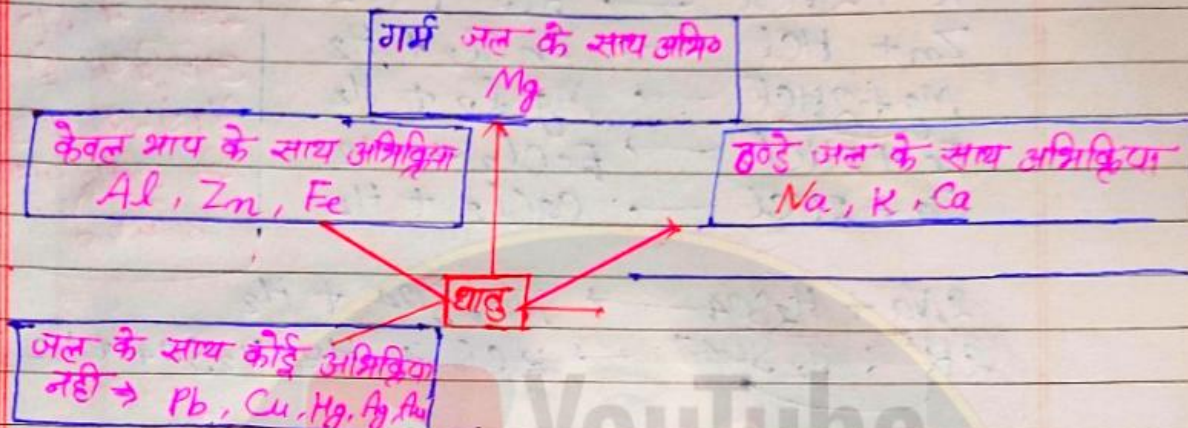 गर्म जल के साथ अभि०
Mg
केवल भाप के साथ अभिक्रिया
Al, Zn, Fe
ठण्डे जल के साथ अभिक्रिया
Na, K, Ca
धातु
जल के साथ कोई अभिक्रिया
नही → Pb, Cu, Hg, Ag, Au
YouTube